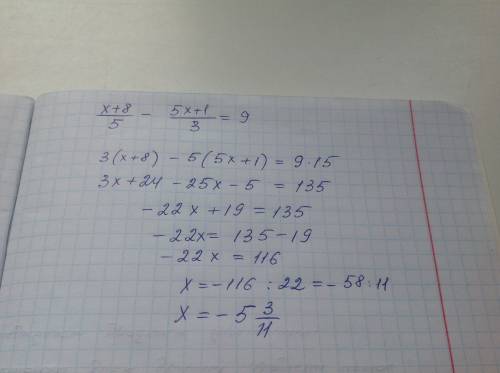 x+8/5 - 5x+1/3 = 9
3(x+8) - 5(5x+1) = 9·15
3x+24 - 25x - 5 = 135
-22x + 19 = 135
-22x = 135 - 19
-22x = 116
x = -116 : 22 = -58 : 11
x = -5 3/11